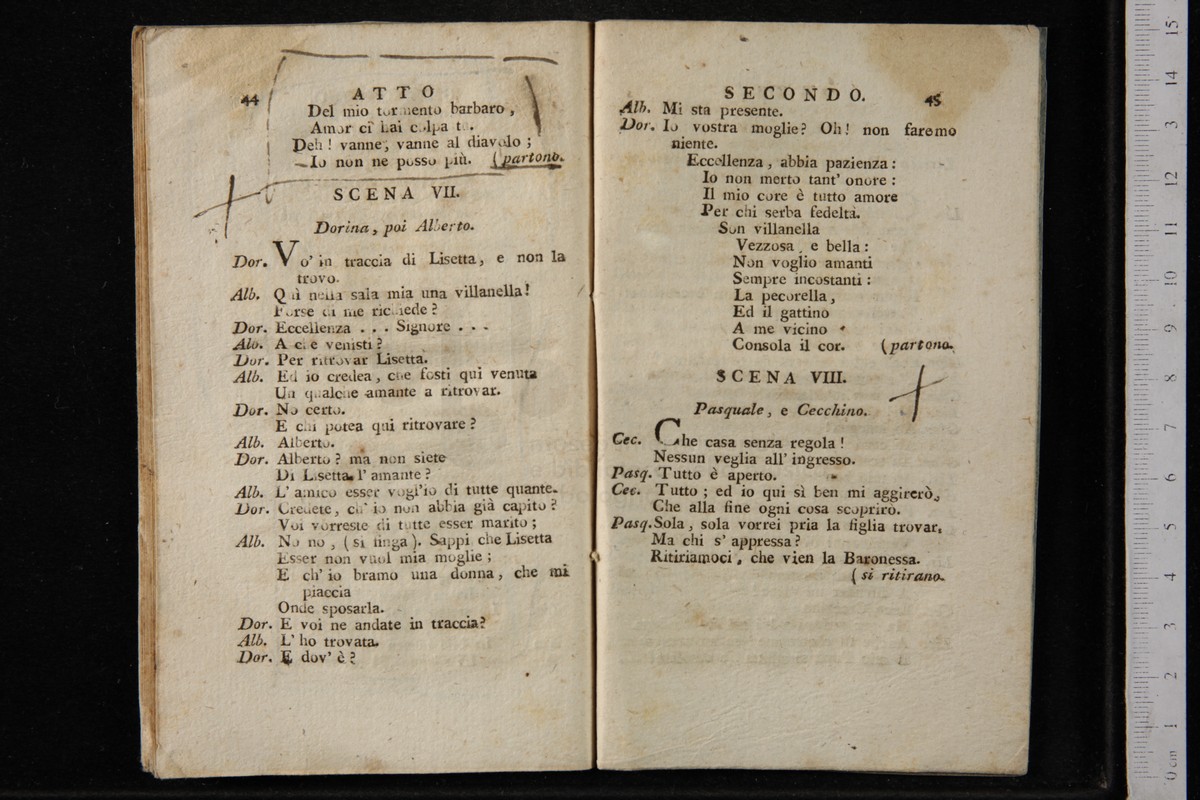 44
ATTO
Del mio tormento barbaro,
Amor ci hai colpa tu.
Deh! vanne, vanne al diavolo;
Io non ne posso più. (partono.
SCENA VII.
Dorina, poi Alberto.
Dor. Vo' in traccia di Lisetta, e non la
trovo.
Alb. Quì nella sala mia una villanella!
Forse di me richiede?
Dor. Eccellenza . . . Signore . . .
Alb. A che venisti?
Dor. Per ritrovar Lisetta.
Alb. Ed io credea, che fosti qui venuta
Un qualche amante a ritrovar.
Dor. No certo.
E chi potea qui ritrovare?
Alb. Alberto.
Dor. Alberto? ma non siete
Di Lisetta l' amante?
Alb. L' amico esser vogl'io di tutte quante.
Dor. Credete, ch' io non abbia già capito?
Voi vorreste di tutte esser marito;
Alb. No no, (si finga). Sappi che Lisetta
Esser non vuol mia moglie;
E ch' io bramo una donna, che mi
piaccia
Onde sposarla.
Dor. E voi ne andate in traccia?
Alb. L' ho trovata.
Dor. E dov' è?
SECONDO.
45
Alb. Mi sta presente.
Dor. Io vostra moglie? Oh! non faremo
niente.
Eccellenza, abbia pazienza:
Io non merto tant' onore:
Il mio core è tutto amore
Per chi serba fedeltà.
Son villanella
Vezzosa, e bella:
Non voglio amanti
Sempre incostanti:
La pecorella,
Ed il gattino
A me vicino
Consola il cor. (partono.
SCENA VIII.
Pasquale, e Cecchino.
Cec. Che casa senza regola!
Nessun veglia all' ingresso.
Pasq. Tutto è aperto.
Cec. Tutto; ed io qui sì ben mi aggirerò,
Che alla fine ogni cosa scoprirò.
Pasq. Sola, sola vorrei pria la figlia trovar,
Ma chi s' appressa?
Ritiriamoci, che vien la Baronessa.
(si ritirano.
0 cm 1 2 3 4 5 6 7 8 9 10 11 12 13 14 15